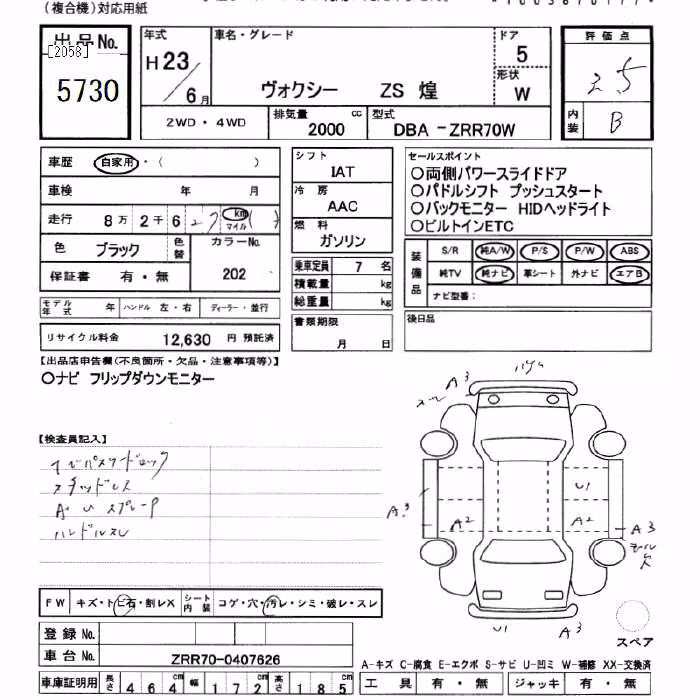 (複合機)対応用紙
出品No.
[2058]
5730
年式
H23/6月
車名・グレード
ヴォクシー ZS 煌
ドア
5
形状
W
評価点
3.5
内装
B
2WD・4WD
排気量
2000 cc
型式
DBA-ZRR70W
車歴 自家用・( )
車検 年 月
走行 8万2千6 km マイル
色 ブラック 色替
カラーNo.
202
保証書 有・無
モデル年式 年 ハンドル 左・右 ディーラー・並行
リサイクル料金 12,630 円 預託済
シフト
IAT
冷房
AAC
燃料
ガソリン
乗車定員 7 名
積載量 kg
総重量 kg
書類期限
月 日
セールスポイント
○両側パワースライドドア
○パドルシフト プッシュスタート
○バックモニター HIDヘッドライト
○ビルトインETC
装備品
S/R 純A/W P/S P/W ABS
純TV 純ナビ 革シート 外ナビ エアB
ナビ型番:
後日品
【出品店申告欄(不良箇所・欠品・注意事項等)】
○ナビ フリップダウンモニター
【検査員記入】
ナビパスワードロック
スタッドレス
A・U スプレーP
ハンドルスレ
A3
A3
A2
U1
A2
A3
モールハズレ
U1
A3
スペア
FW キズ・トビ石・割レX
シート内装 コゲ・穴・汚レ・シミ・破レ・スレ
登録No.
車台No. ZRR70-0407626
車庫証明用 長さ 464cm 幅 172cm 高さ 185cm
A-キズ C-腐食 E-エクボ S-サビ U-凹ミ W-補修 XX-交換済
工具 有・無 ジャッキ 有・無